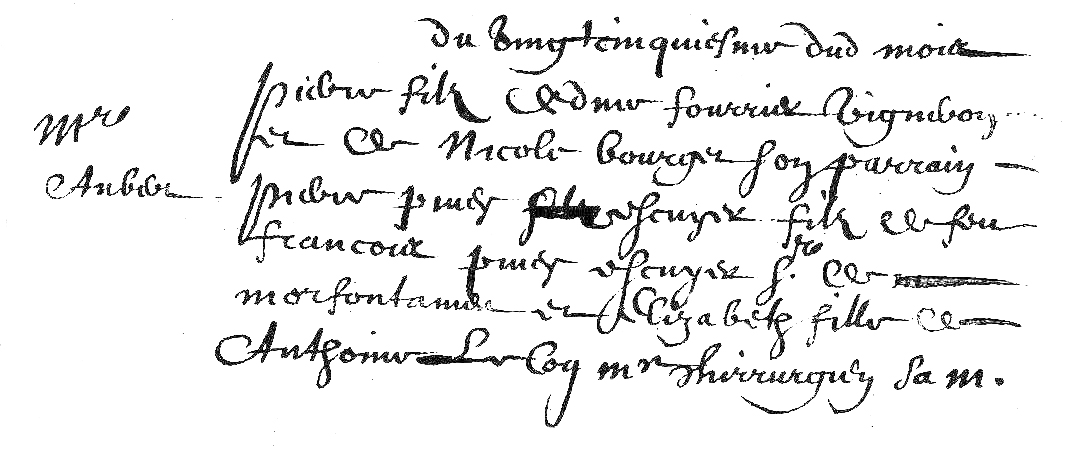 du vingtcinquiesme dud mois
pierre filz Edme fourrier vigneron
Mre
et de Nicole bourget son parrain
Aubert
pierre escuyer filz de feu
francois escuyer sr de
morfontaine et Elizabeth fille de
Anthoine Le Coq mre chirurgien sa m.